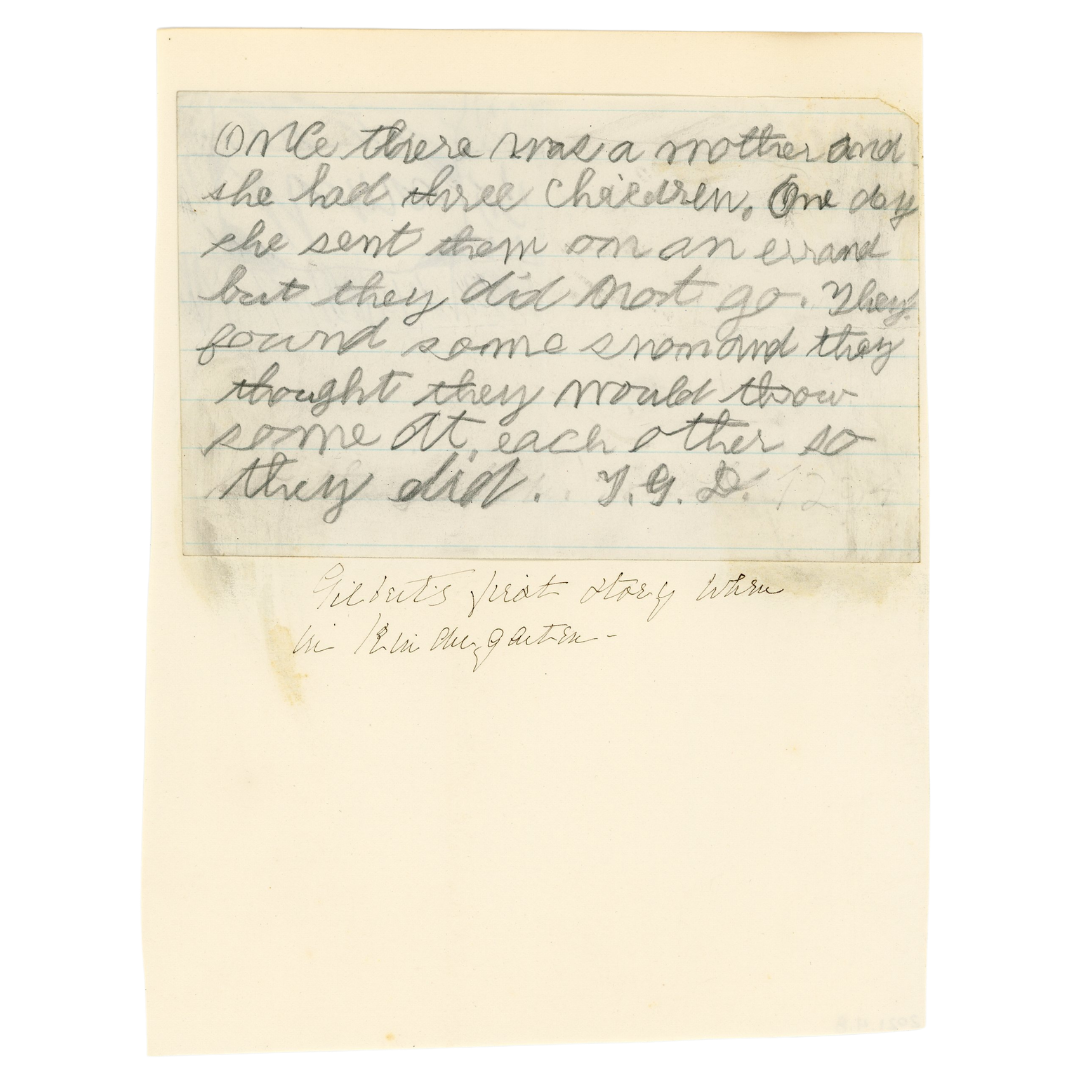 Once there was a mother and
she had three children. One day
she sent them on an errand
but they did not go. They
found some snow and they
thought they would throw
some at each other so
they did. T. G. D.
Gilbert's first story when
in Kindergarten -